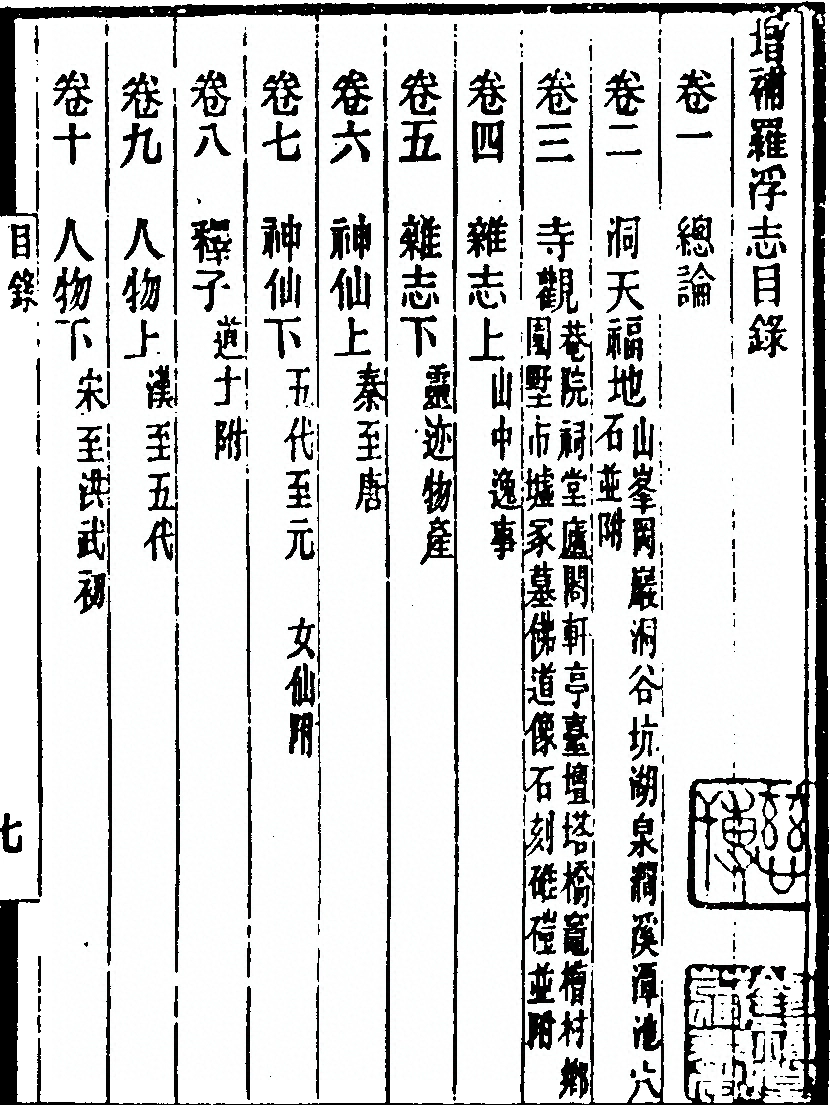 增補羅浮志目錄
卷一 總論
卷二 洞天福地 山峯岡巖洞谷坑湖泉澗溪潭池穴
石並附
卷三 寺觀 菴院祠堂廬閣軒亭臺壇塔橋竈檀村鄉
園墅市墟冢墓佛道像石刻碓磑並附
卷四 雜志上 山中逸事
卷五 雜志下 靈迹物產
卷六 神仙上 秦至唐
卷七 神仙下 五代至元 女仙附
卷八 釋子 道士附
卷九 人物上 漢至五代
卷十 人物下 宋至洪武初
目錄
七